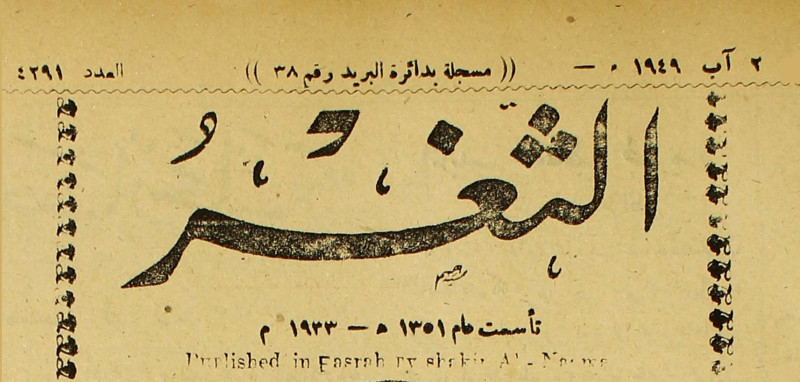 ٢ آب ١٩٤٩ * — (( مسجلة بدائرة البريد رقم ٣٨ )) العدد ٤٢٩١
الثغر
تأسست عام ١٣٥١ ه — ١٩٣٣ م
Published in Basrah by shakir Al - Nacma